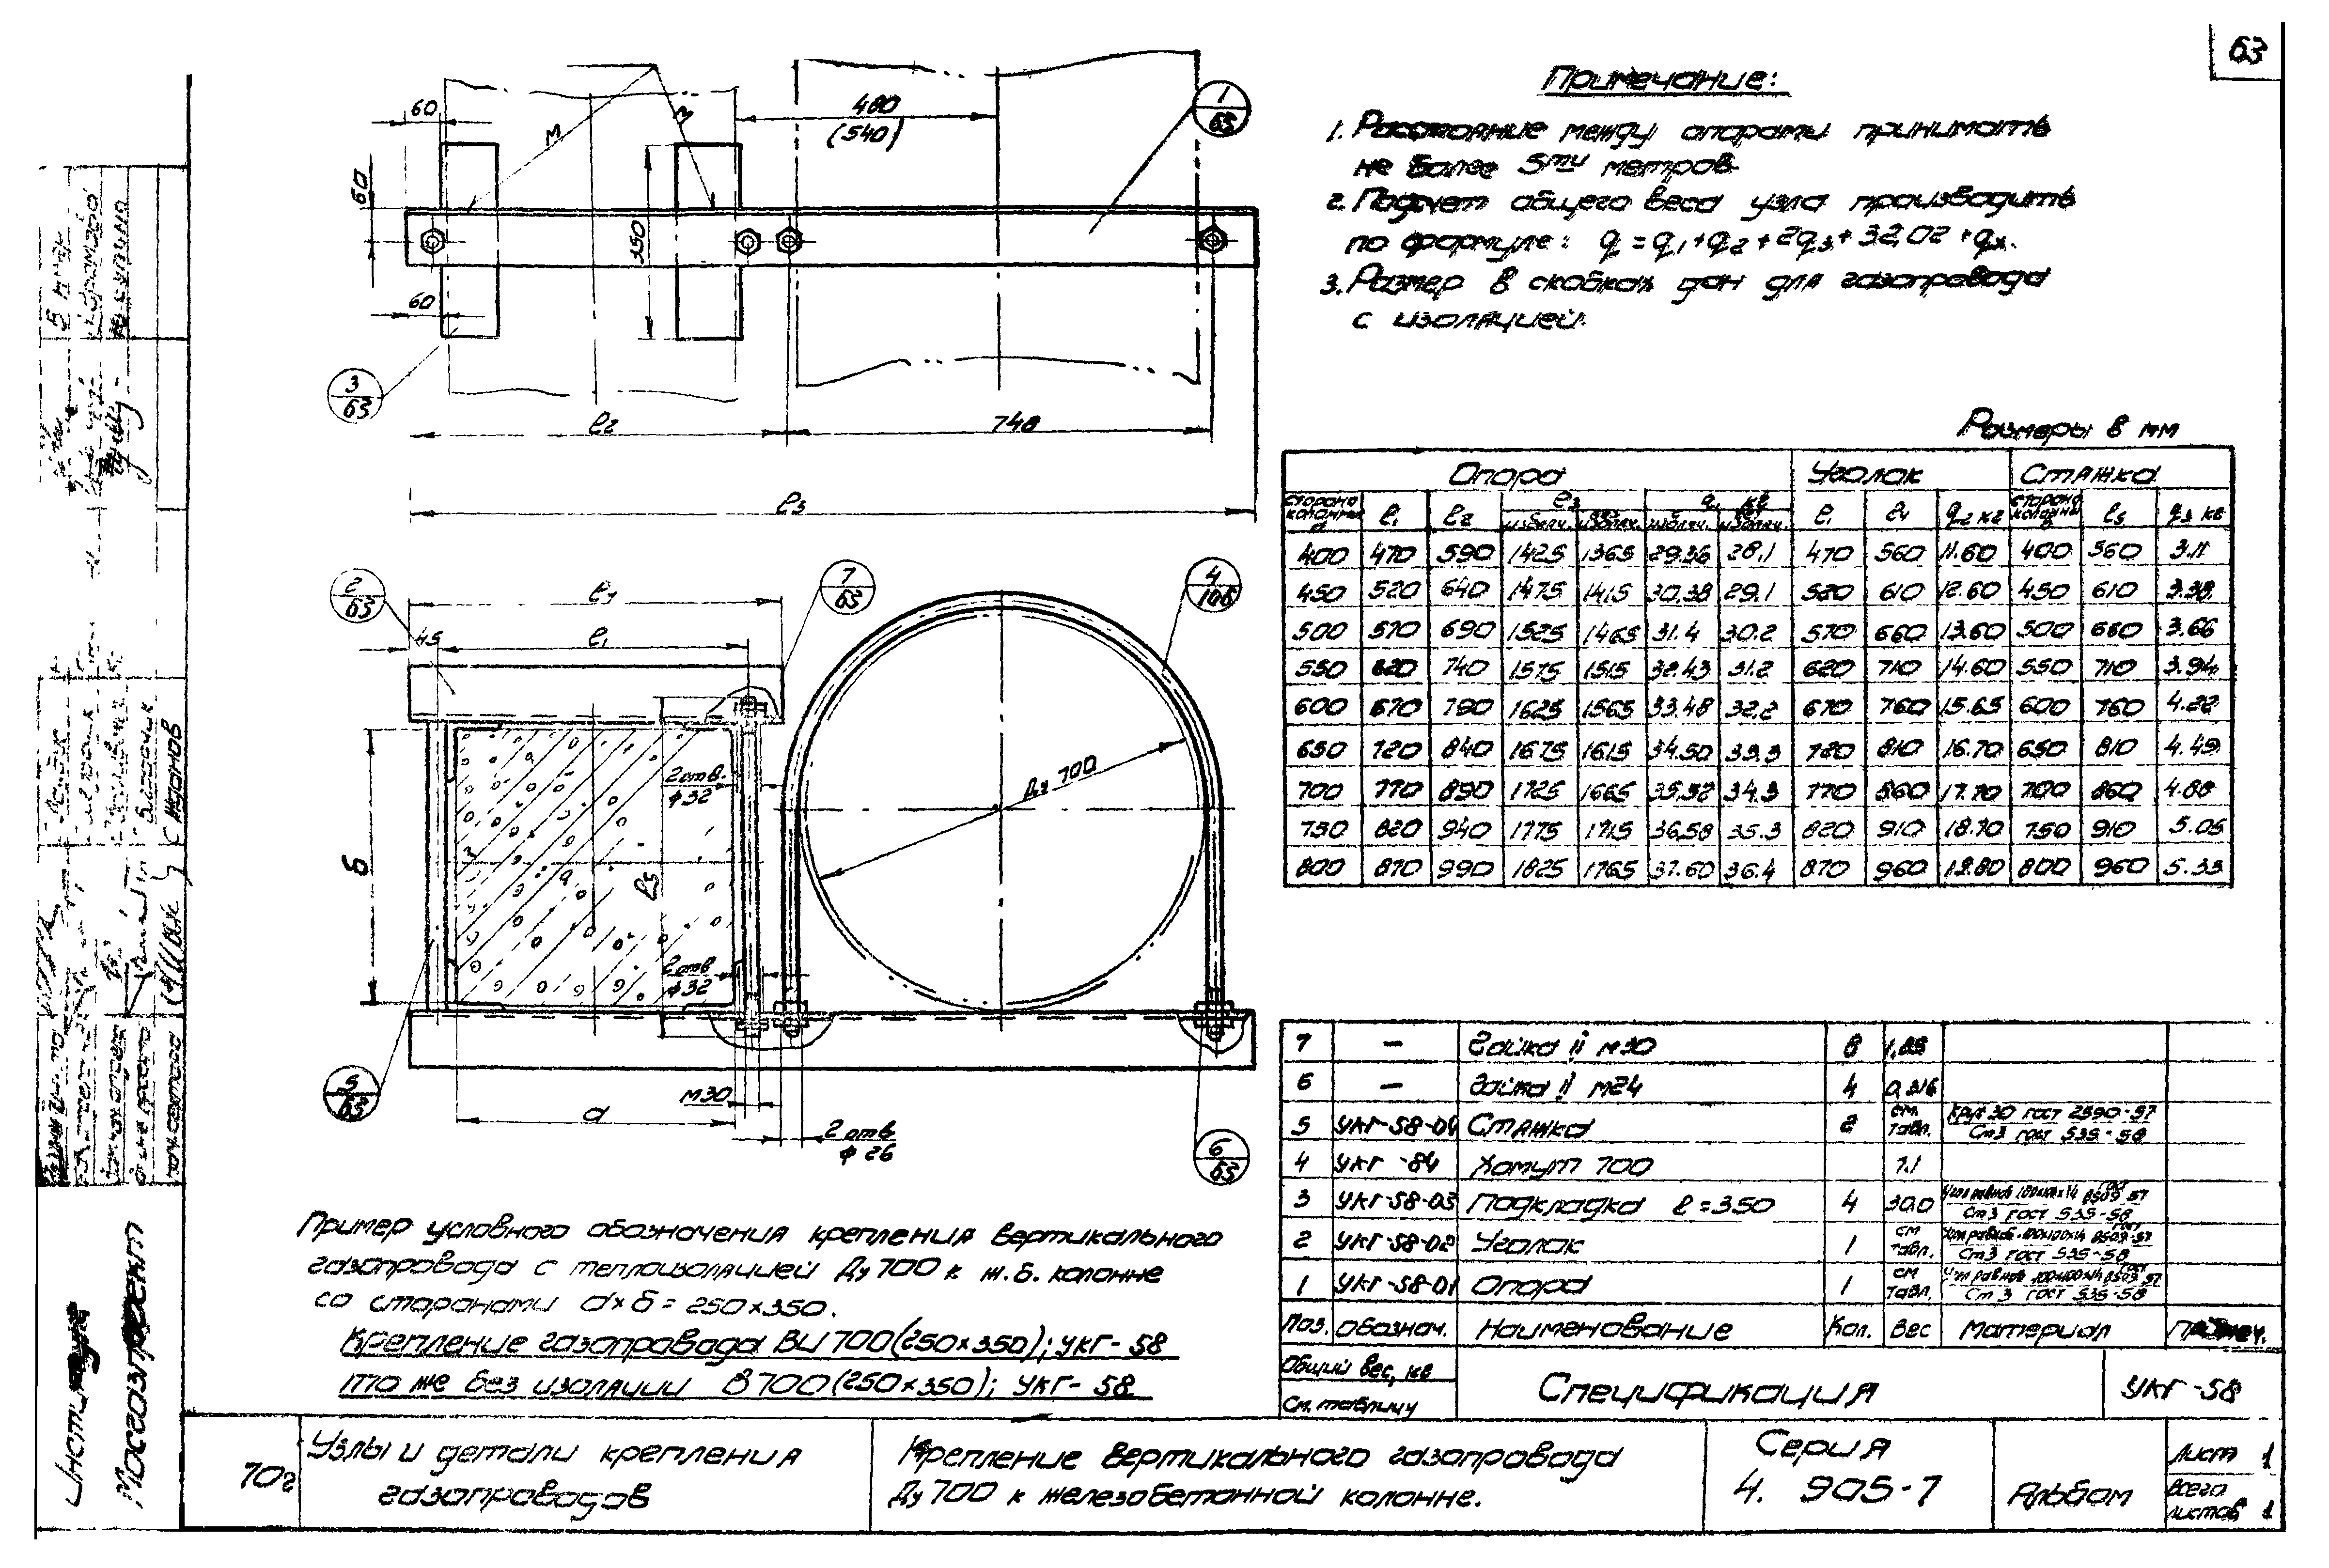 63
Примечание:
1. Расстояние между опорами принимать
не более 5ти метров
2. Подсчет общего веса узла производить
по формуле: q = q1 + q2 + 2q3 + 32,02 + qх.
3. Размер в скобках дан для газопровода
с изоляцией.
60
480
(540)
1/63
60
350
60
3/63
ℓ2
748
ℓ3
2/63
7/63
4/106
ℓ4
45
ℓ1
2 отв.
ф32
Ду 700
б
ℓ5
2 отв
ф32
5/63
М30
а
2 отв
ф 26
6/63
Размеры в мм
Опора Уголок Стяжка
сторона колонны а ℓ1 ℓ2 ℓ3 q1 кг ℓ1 ℓ4 q2 кг сторона колонны б ℓ5 q3 кг
с изоляц. без изоляц. с изоляц. без изоляц.
400 470 590 1425 1365 29.36 28,1 470 560 11.60 400 560 3.11
450 520 640 1475 1415 30.38 29.1 520 610 12.60 450 610 3.38
500 570 690 1525 1465 31.4 30.2 570 660 13.60 500 660 3.66
550 620 740 1575 1515 32.43 31.2 620 710 14.60 550 710 3.94
600 670 790 1625 1565 33.48 32.2 670 760 15.65 600 760 4.22
650 720 840 1675 1615 34.50 33.3 720 810 16.70 650 810 4.49
700 770 890 1725 1665 35.52 34.3 770 860 17.70 700 860 4.88
750 820 940 1775 1715 36.58 35.3 820 910 18.70 750 910 5.05
800 870 990 1825 1765 37.60 36.4 870 960 19.80 800 960 5.33
7 — Гайка II М30 8
6 — Гайка II М24 4 0,316
5 УКГ-58-04 Стяжка 2 см. табл. Круг 30 ГОСТ 2590-57 Ст3 ГОСТ 535-58
4 УКГ-84 Хомут 700 7.1
3 УКГ-58-03 Подкладка ℓ=350 4 30.0 Угол равнов 100х100х14 ГОСТ 8509-57 Ст3 ГОСТ 535-58
2 УКГ-58-02 Уголок 1 см табл. Угол равнов 100х100х14 ГОСТ 8509-57 Ст3 ГОСТ 535-58
1 УКГ-58-01 Опора 1 см табл. Угол равнов 100х100х14 ГОСТ 8509-57 Ст3 ГОСТ 535-58
Поз. Обознач. Наименование Кол. Вес Материал Примеч.
Общий вес, кг
См. таблицу
Спецификация
УКГ-58
Пример условного обозначения крепления вертикального
газопровода с теплоизоляцией Ду 700 к ж.б. колонне
со сторонами а х б = 250х350.
Крепление газопровода ВИ 700(250х350); УКГ-58
То же без изоляции В 700(250х350); УКГ-58
Институт
Мосгазпроект
70г
Узлы и детали крепления
газопроводов
Крепление вертикального газопровода
Ду 700 к железобетонной колонне.
Серия
4. 905-7
Альбом
Лист 1
Всего
листов 1